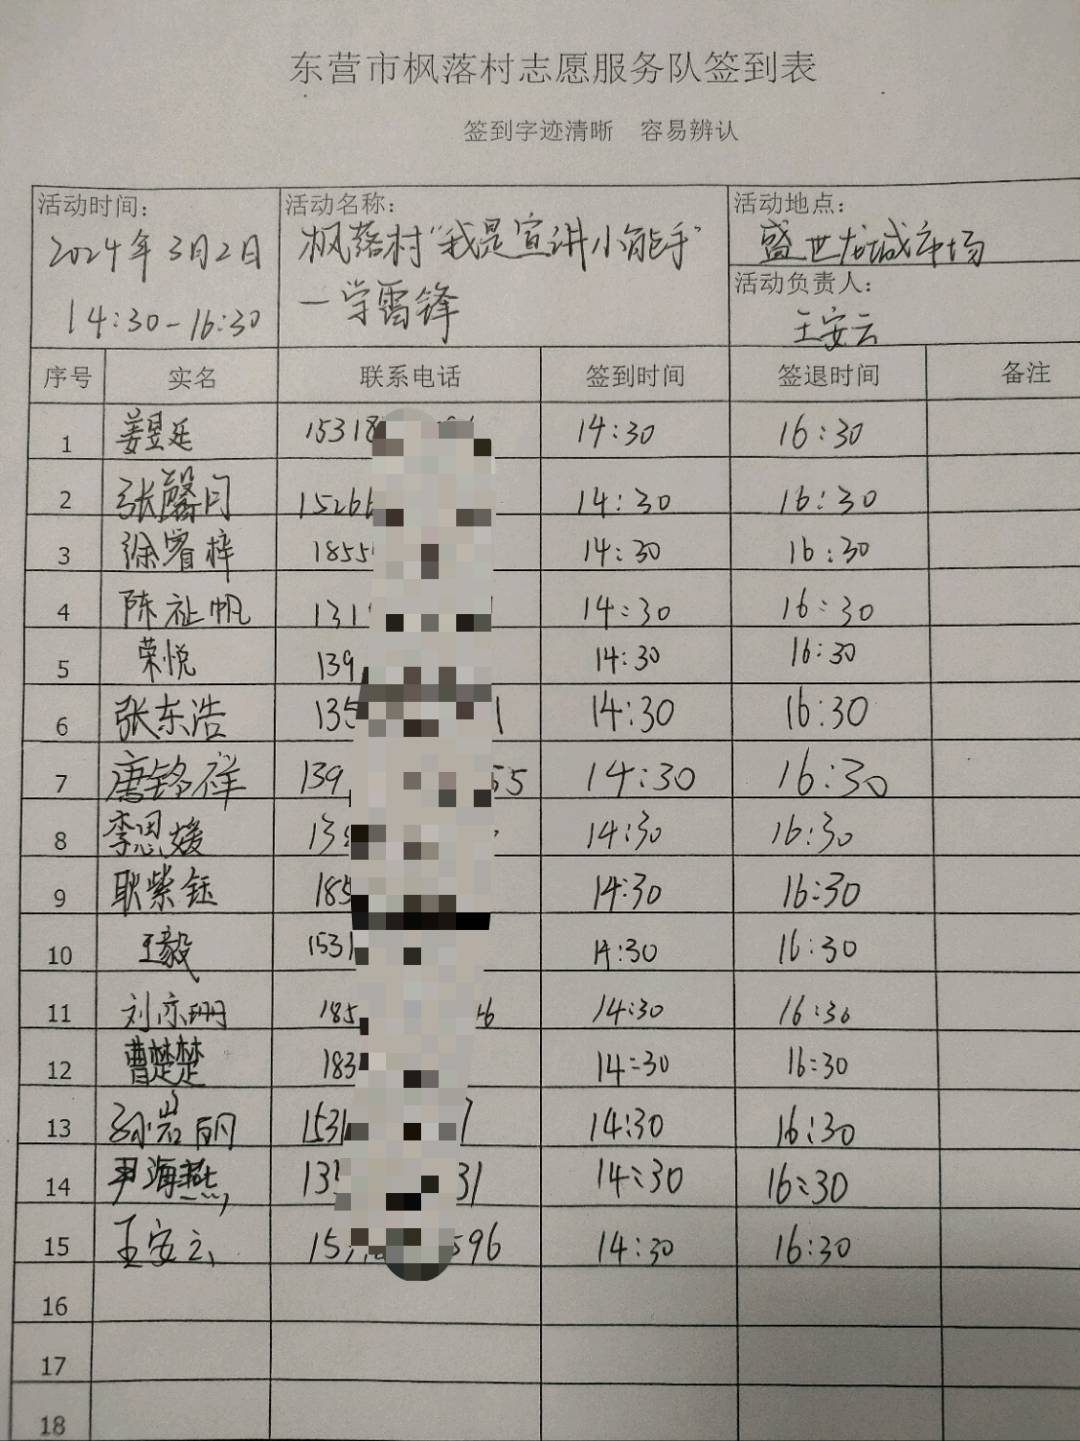 东营市枫落村志愿服务队签到表
签到字迹清晰 容易辨认
活动时间: 活动名称: 活动地点:
2024年3月2日 枫落村"我是宣讲小能手" 盛世龙城市场
14:30-16:30 —学雷锋 活动负责人:
王安云
序号 实名 联系电话 签到时间 签退时间 备注
1 姜昱廷 15318 14:30 16:30
2 张馨月 15266 14:30 16:30
3 徐睿梓 1855 14:30 16:30
4 陈祉帆 131 14:30 16:30
5 荣悦 139 14:30 16:30
6 张东浩 135 1 14:30 16:30
7 唐铭祥 139 55 14:30 16:30
8 李思媛 13 14:30 16:30
9 耿紫钰 185 14:30 16:30
10 王毅 1531 14:30 16:30
11 刘亦珊 185 6 14:30 16:30
12 曹楚楚 183 14:30 16:30
13 孙岩丽 1531 14:30 16:30
14 尹海燕 13 31 14:30 16:30
15 王安云 15 596 14:30 16:30
16
17
18